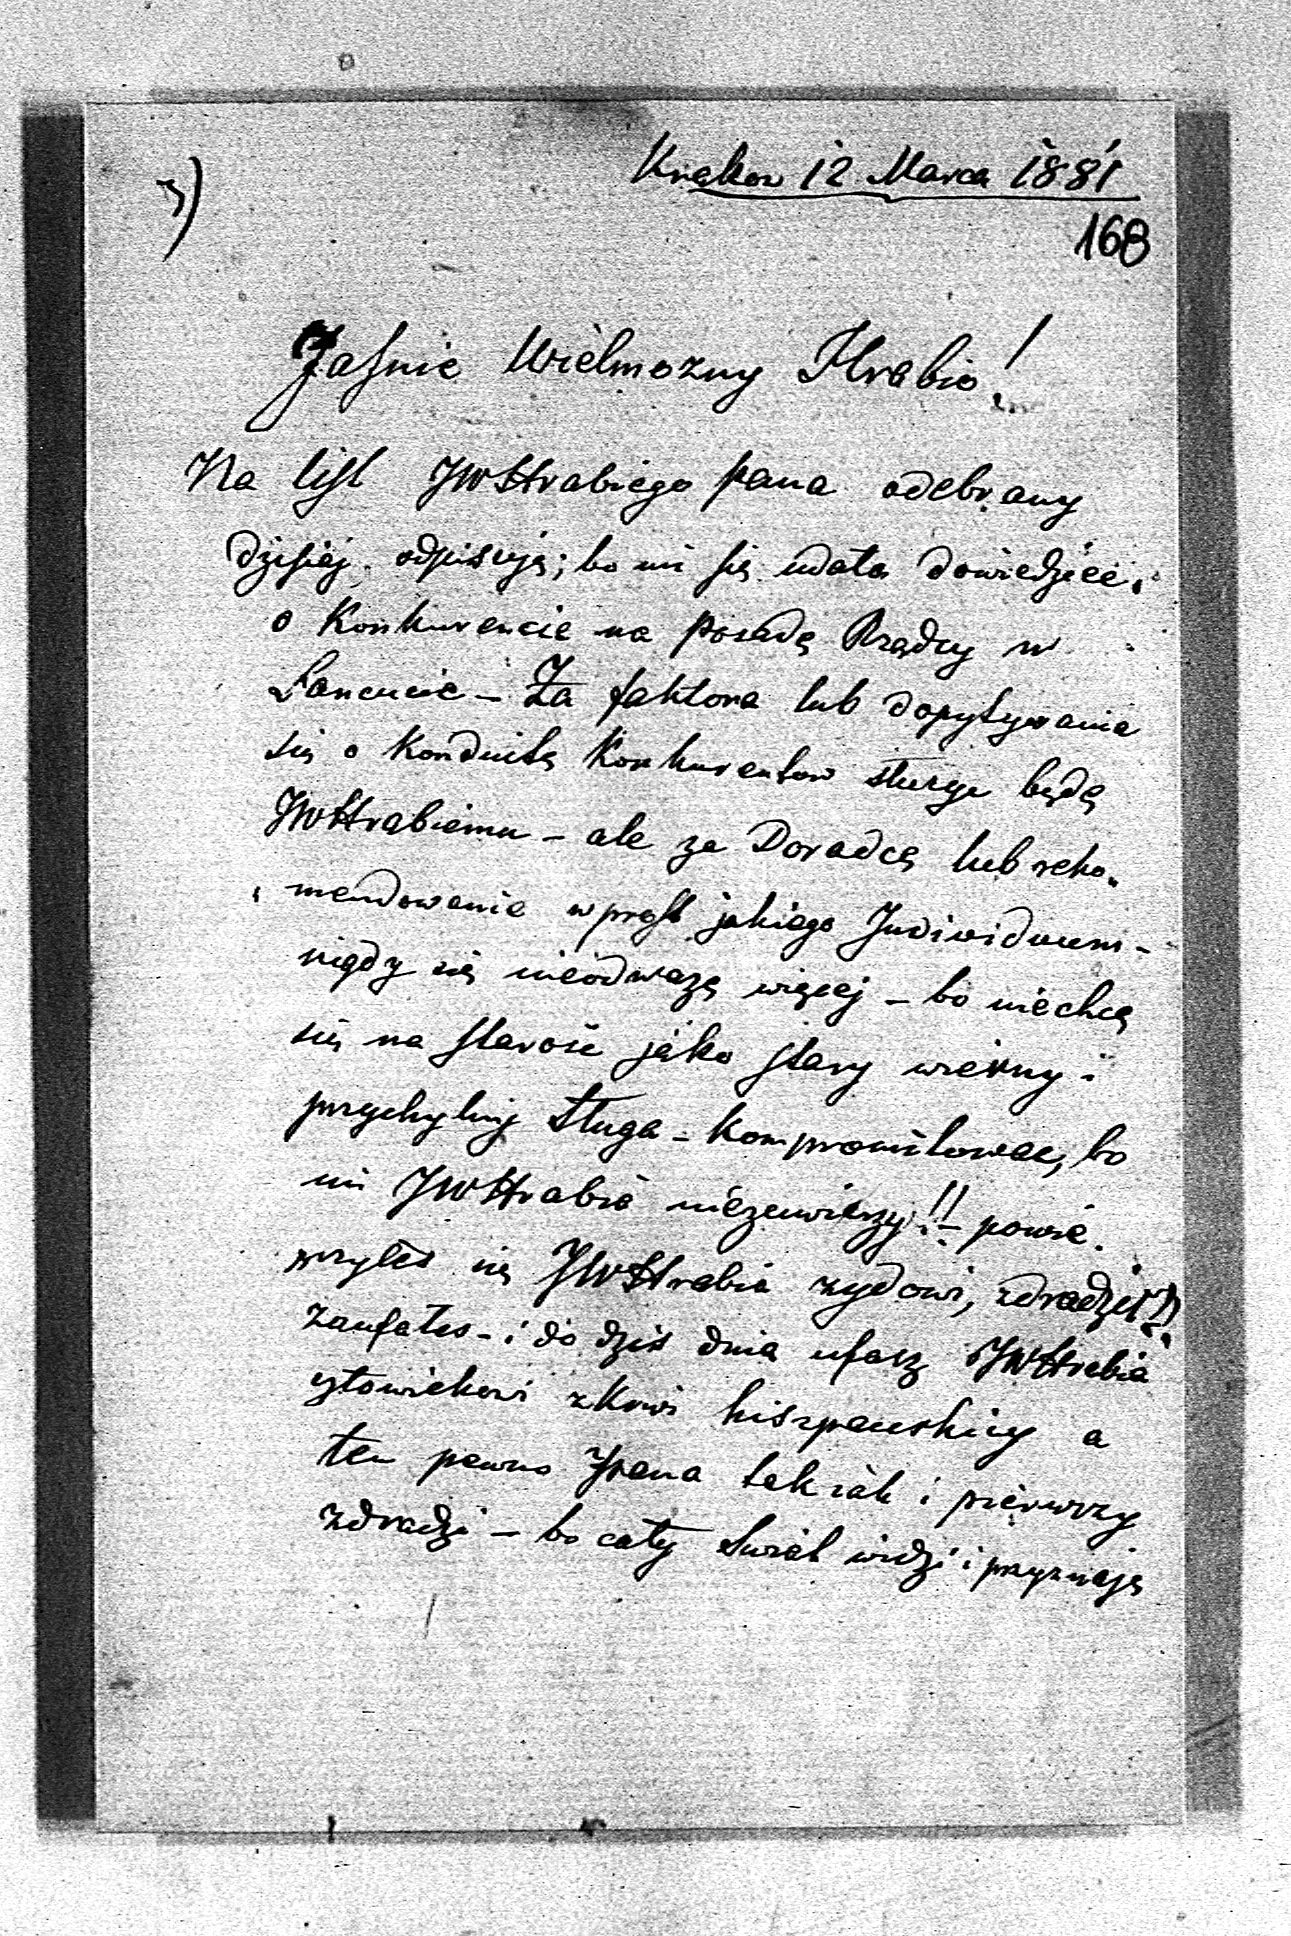 3)
Krakow 12 Marca 1881
168
Jaśnie Wielmozny Hrabio!
Na list JWHrabiego pana odebrany
dzisiej odpisuję; bo mi się udało dowiedzieć
o Konkurencie na posadę Rządcy w
Lancucie – Za faktora lub dopytywania
się o Konduitę Konkurentow służyć będę
JWHrabiemu – ale za Doradcę lub reko„
„mendowanie wprost jakiego Individuum –
nigdy się nieodważę więcej – bo niechcę
się na starość jako stary wierny i
przychylny Sługa – kompromitować, bo
mi JWHrabia niezawierzy!! – powie.
wzyłeś się JWHrabia zydowi, zdradził?
zaufałeś – i do dziś dnia ufasz JWHrabia
człowiekowi z Krwi hiszpańskiey a
ten pewno Pana tak iak i pierwszy
zdradzi – bo cały Swiat widzi i przyznaję